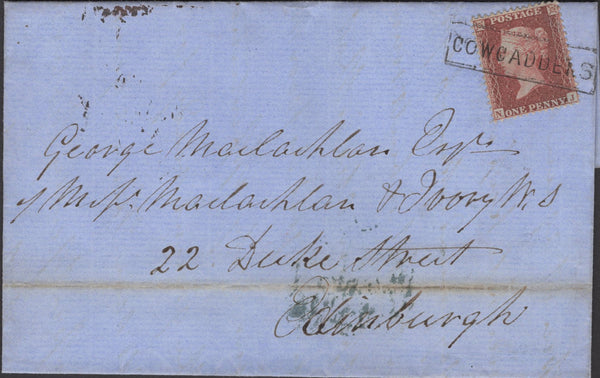 POSTAGE
COWCADDENS
N J
ONE PENNY
George Maclachlan Esqr
c/ Messrs Maclachlan & Ivory W.S
22 Duke Street
Edinburgh